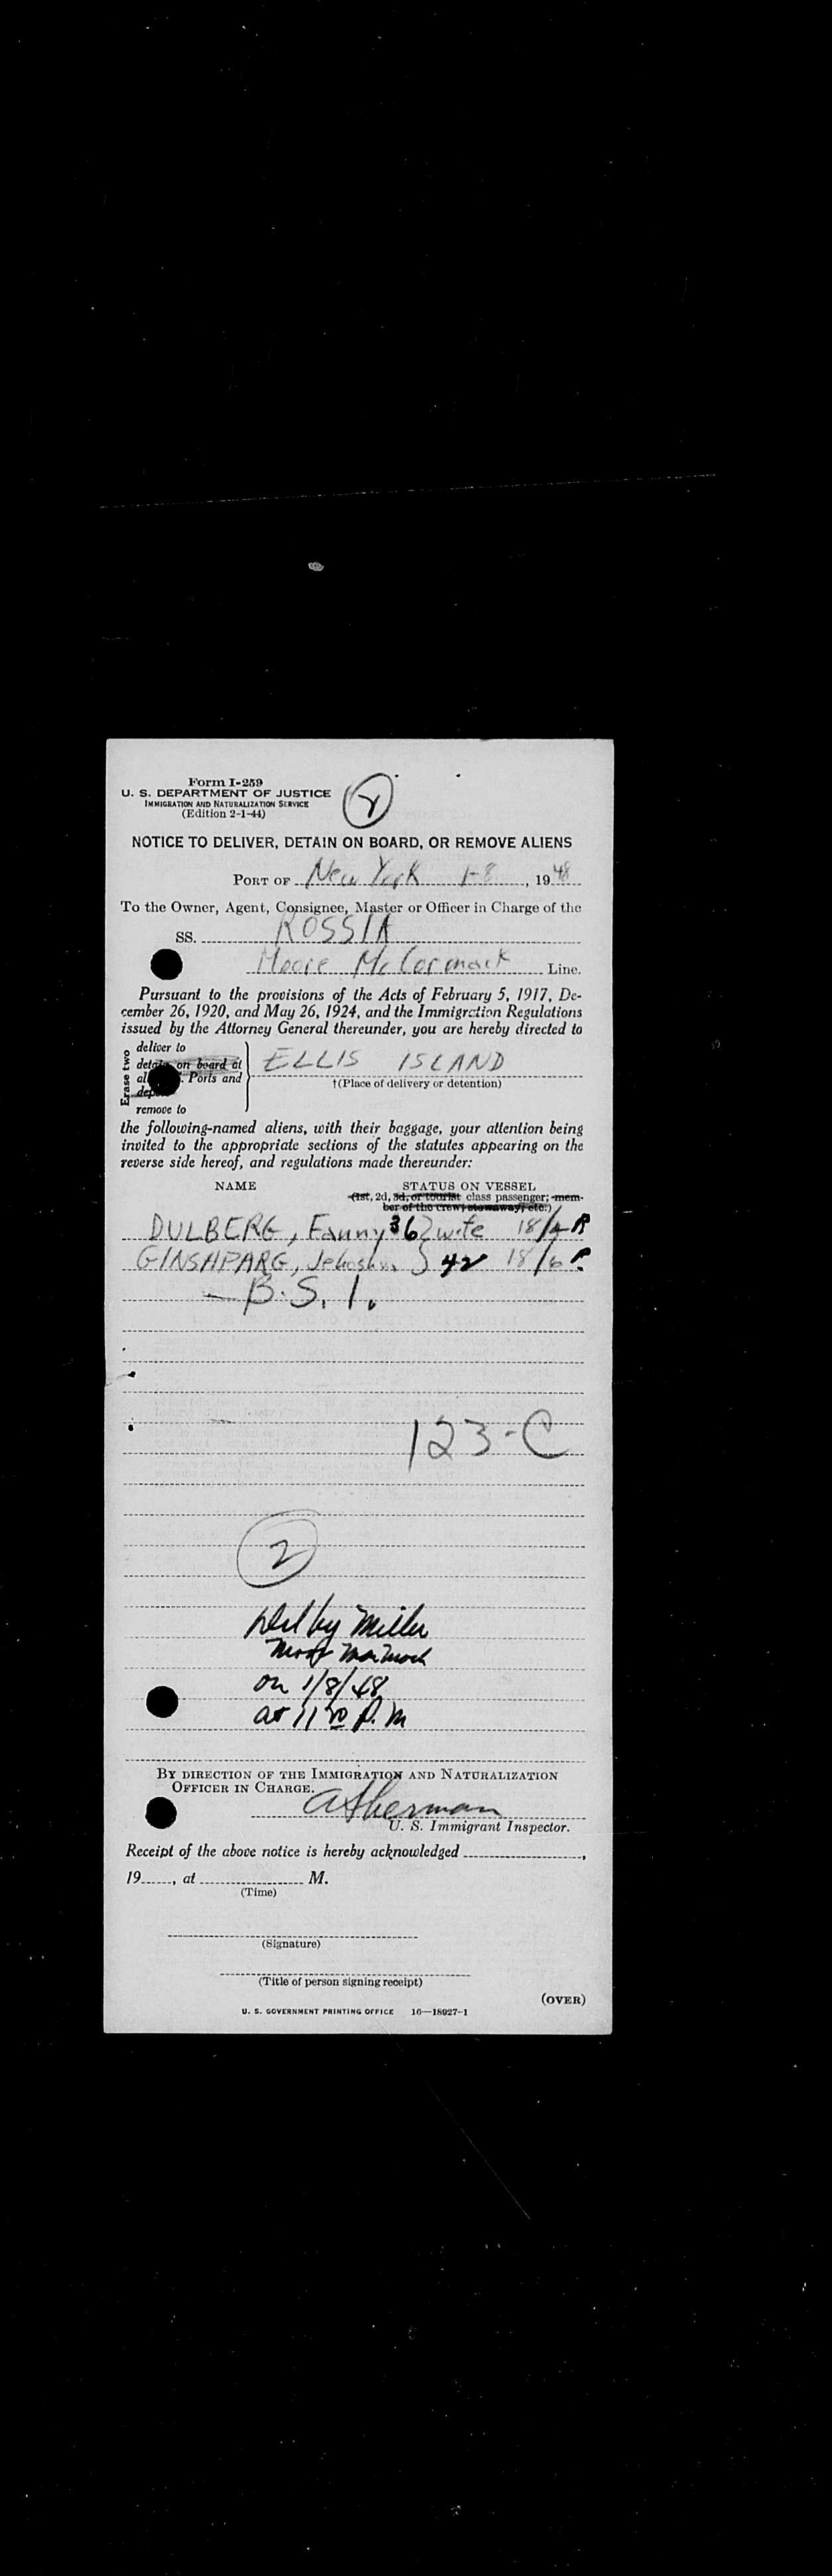 Form I-259
U. S. DEPARTMENT OF JUSTICE
IMMIGRATION AND NATURALIZATION SERVICE
(Edition 2-1-44)
NOTICE TO DELIVER, DETAIN ON BOARD, OR REMOVE ALIENS
PORT OF New York 1-8, 1948
To the Owner, Agent, Consignee, Master or Officer in Charge of the
SS. ROSSIA
Moore McCormack Line.
Pursuant to the provisions of the Acts of February 5, 1917, De-
cember 26, 1920, and May 26, 1924, and the Immigration Regulations
issued by the Attorney General thereunder, you are hereby directed to
Erase two
deliver to
on board at
Ports and
remove to
ELLIS ISLAND
†(Place of delivery or detention)
the following-named aliens, with their baggage, your attention being
invited to the appropriate sections of the statutes appearing on the
reverse side hereof, and regulations made thereunder:
NAME STATUS ON VESSEL
(1st, 2d, 3d, or tourist class passenger; mem-
ber of the crew; stowaway; etc.)
DULBERG, Fanny 36 wife 18/4
GINSHPARG, 42 18/6
B.S.I.
123-C
2
Del by Miller
on 1/8/48
at 11 P.M
BY DIRECTION OF THE IMMIGRATION AND NATURALIZATION
OFFICER IN CHARGE.
ASherman
U. S. Immigrant Inspector.
Receipt of the above notice is hereby acknowledged ,
19 , at M.
(Time)
(Signature)
(Title of person signing receipt)
(OVER)
U. S. GOVERNMENT PRINTING OFFICE 16—18927-1